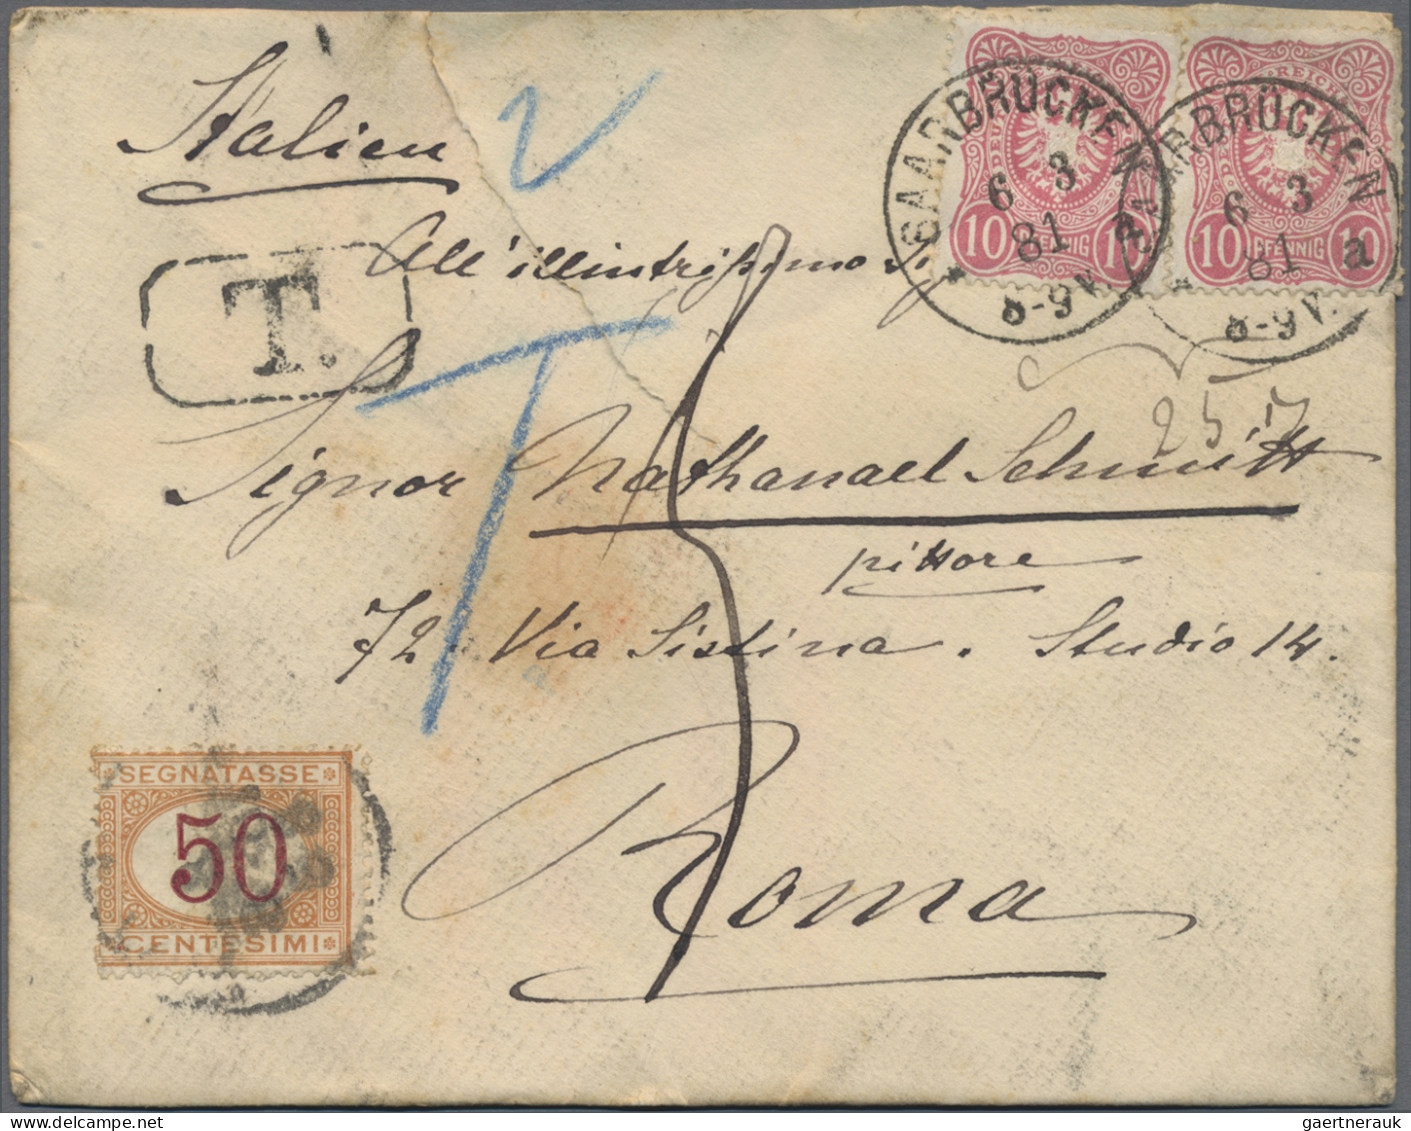 Italien
SAARBRÜCKEN
6 3
81
8-9V.
a
SAARBRÜCKEN
6 3
81
8-9V.
a
REICHS
10 PFENNIG 10
10 PFENNIG 10
All'illustrissimo
T.
T
257
Signor Nathanael Schmitt
pittore
72 Via Sistina. Studio 14.
Roma
SEGNATASSE
50
CENTESIMI
gaertnerauk